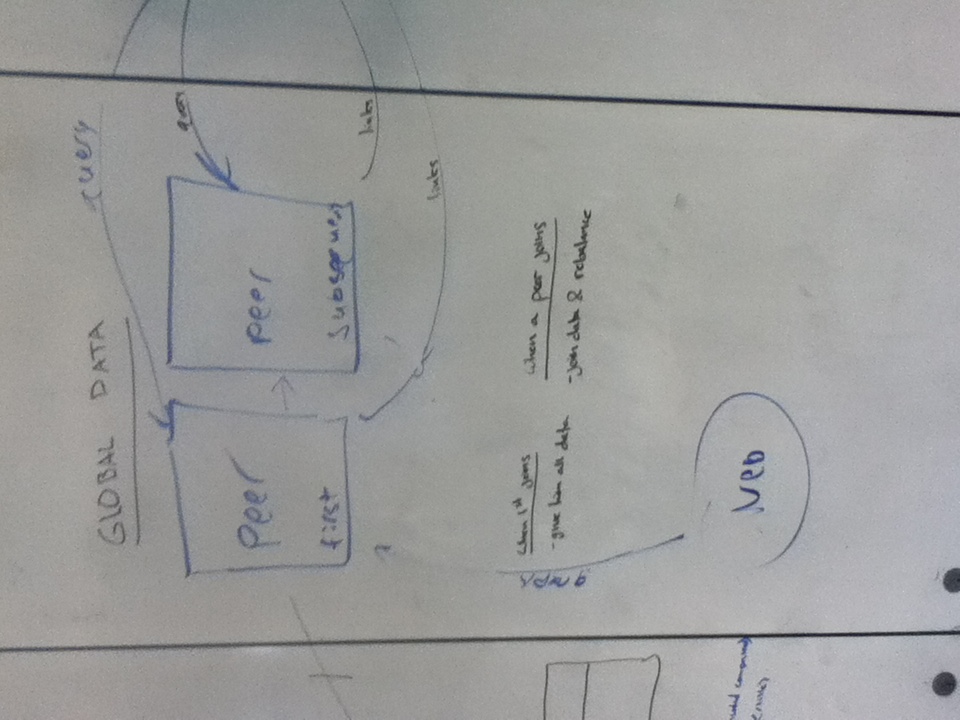 GLOBAL DATA
query
query
peer
first
peer
subsequent
links
links
graph
when 1st joins
- give him all data
when a peer joins
- join data & rebalance
Neo